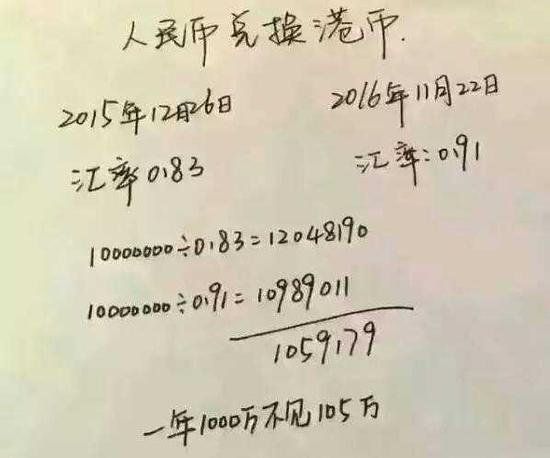 人民币兑换港币.
2015年12月26日
2016年11月22日
汇率0.83
汇率:0.91
10000000÷0.83=12048190
10000000÷0.91=10989011
1059179
一年1000万不见105万